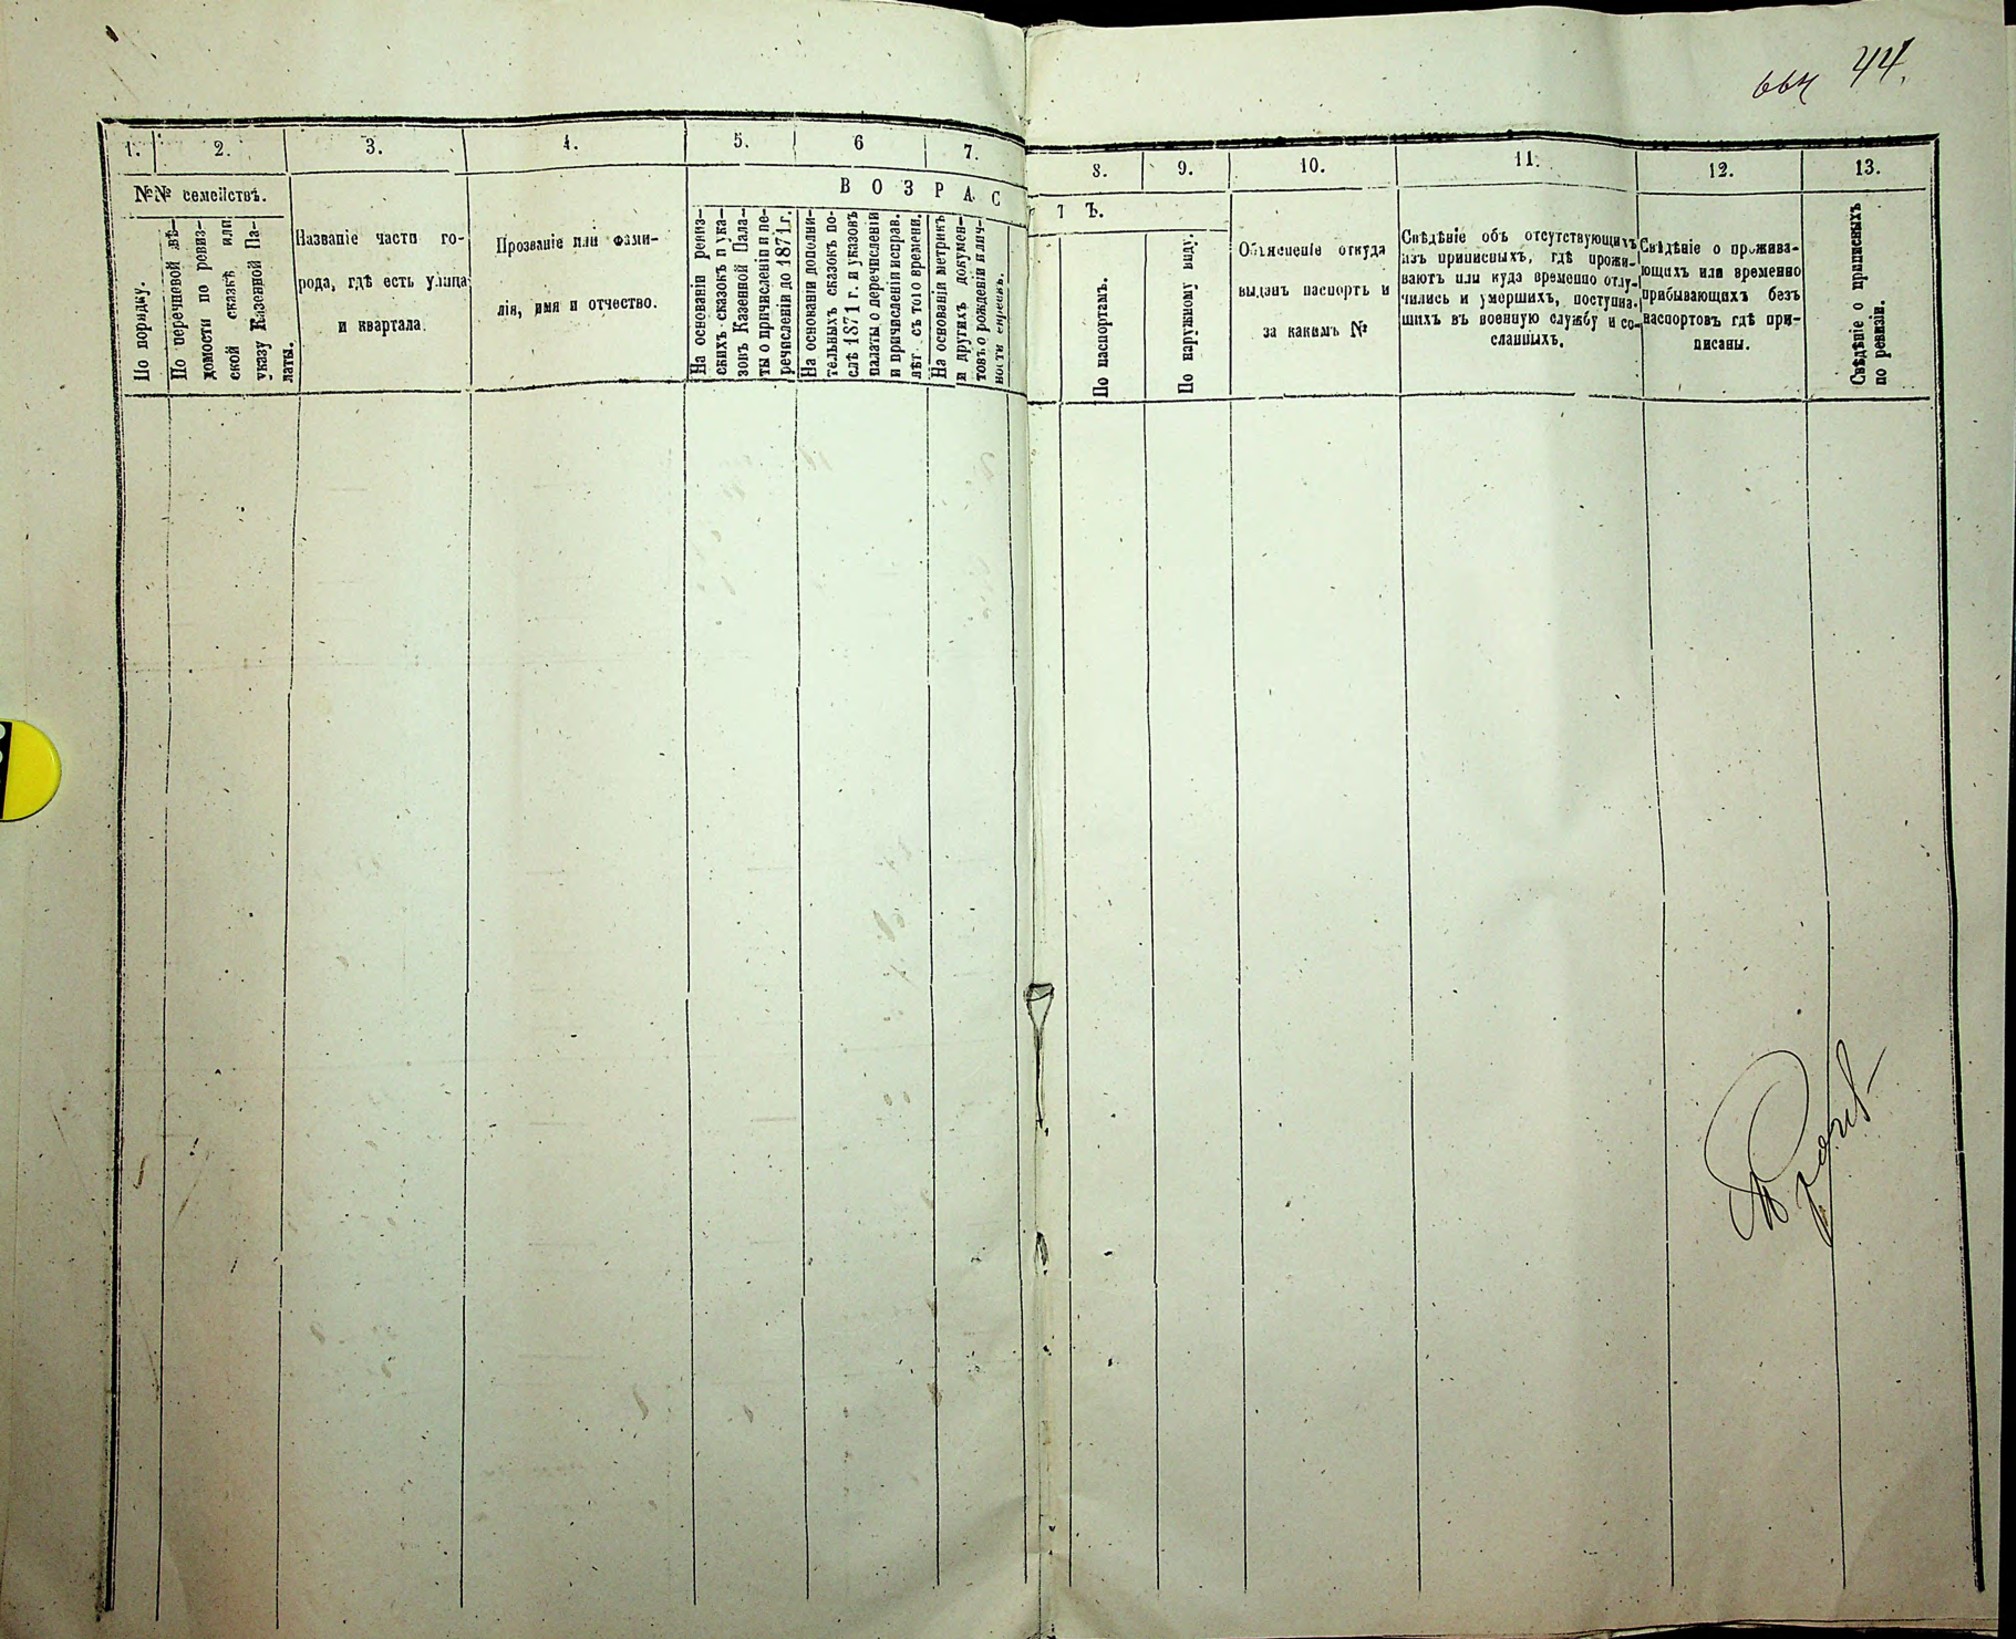 44.
1. 2. 3. 4. 5. 6 7. 8. 9. 10. 11. 12. 13.
№№ семействъ.
По порядку.
По перечневой вѣ-
домости по ревиз-
ской сказкѣ или
указу Казенной Па-
латы.
Названіе части го-
рода, гдѣ есть улица
и квартала.
Прозваніе или фами-
лія, имя и отчество.
В О З Р А С Т Ъ.
На основаніи ревиз-
скихъ сказокъ и ука-
зовъ Казенной Пала-
ты о причисленіи и пе-
речисленіи до 1871 г.
На основаніи дополни-
тельныхъ сказокъ по-
слѣ 1871 г. и указовъ
палаты о перечисленіи
и причисленіи исправ.
лѣт. съ того времени.
На основаніи метрикъ
и другихъ докумен-
товъ о рожденіи и лич-
ности
По паспортамъ.
По наружному виду.
Объясненіе откуда
выданъ паспортъ и
за какимъ №
Свѣдѣніе объ отсутствующихъ
изъ приписныхъ, гдѣ прожи-
ваютъ или куда временно отлу-
чились и умершихъ, поступив-
шихъ въ военную службу и со-
сланныхъ.
Свѣдѣніе о прожива-
ющихъ или временно
прибывающихъ безъ
паспортовъ гдѣ при-
писаны.
Свѣдѣніе о приписныхъ
по ревизіи.